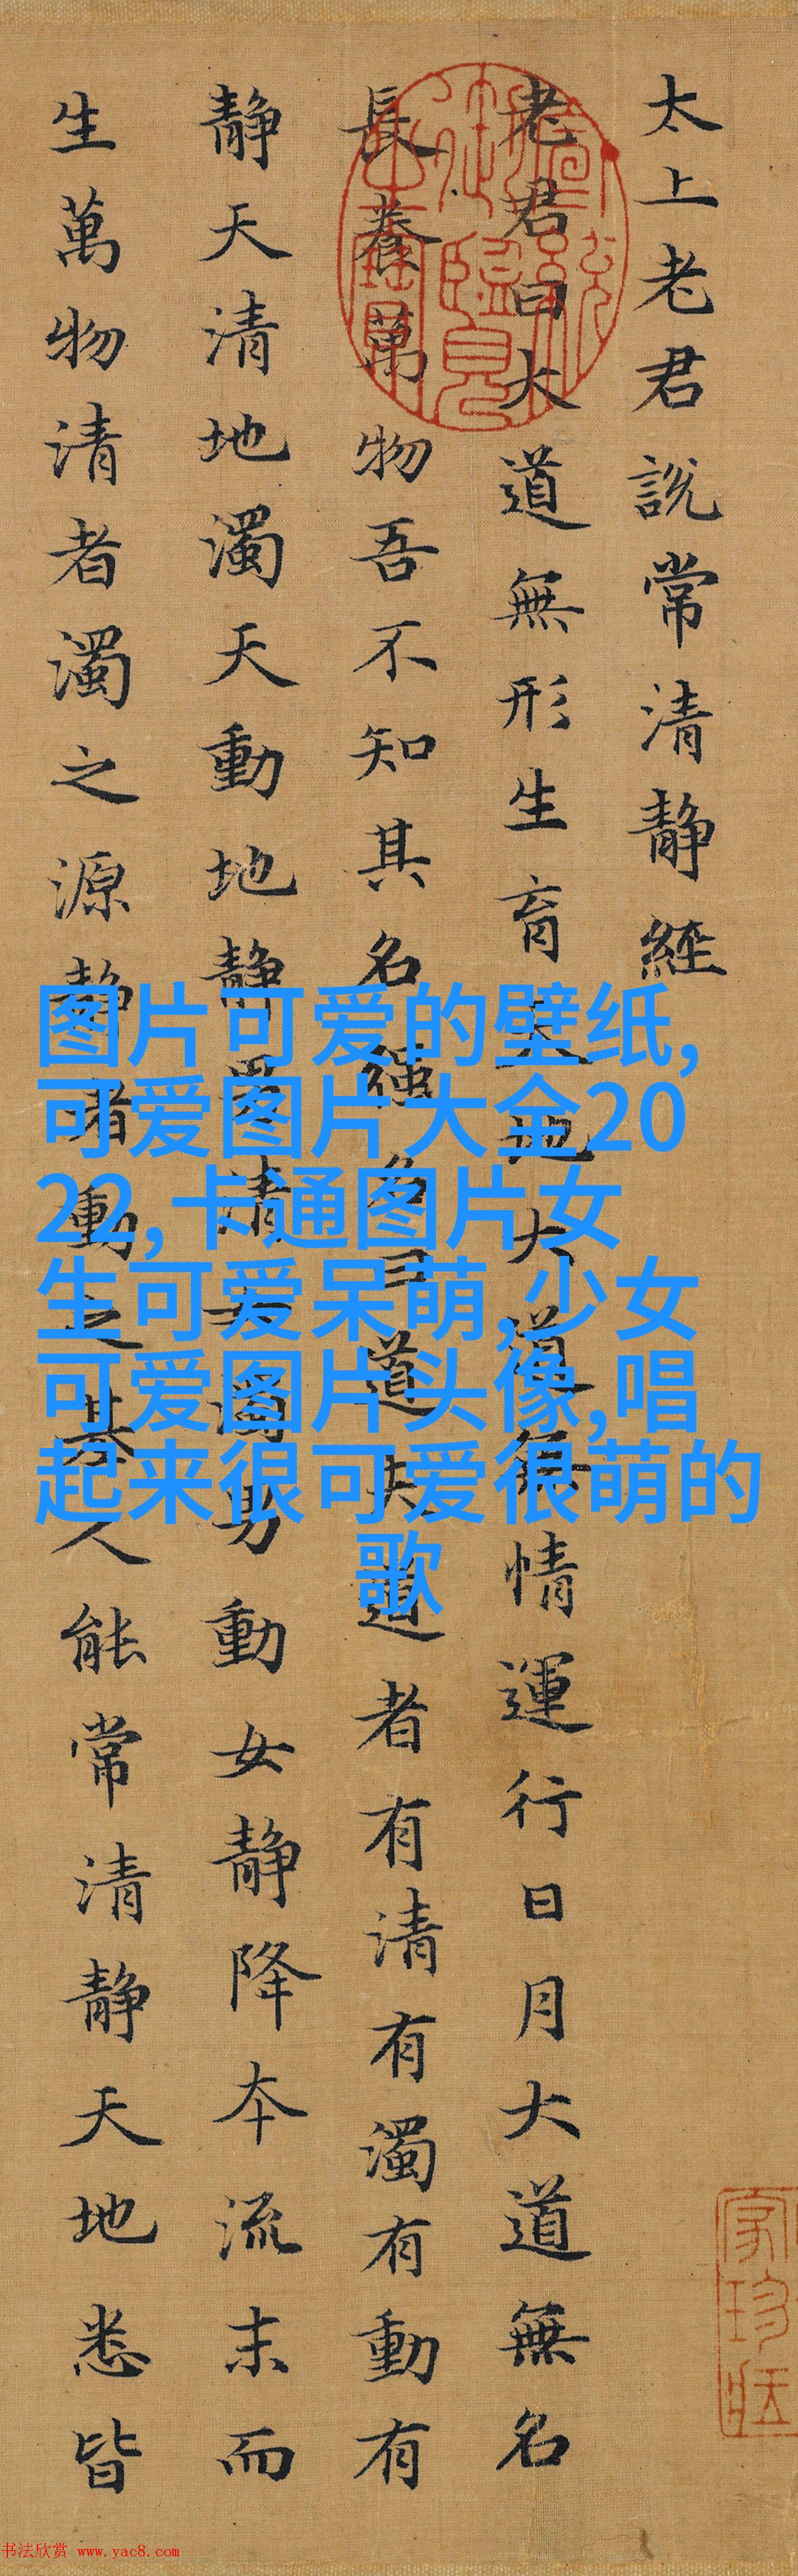 太上老君説常清静經
老君曰大道無形生育天地大道無情運行日月大道無名
長養萬物吾不知其名强名曰道夫道者有清有濁有動有
静天清地濁天動地静男清女濁男動女静降夲流末而
生萬物清者濁之源静者動之基人能常清静天地悉皆
图片可爱的壁纸,
可爱图片大金20
22,卡通图片女
生可爱呆萌,少女
可爱图片头像,唱
起来很可爱很萌的
歌
书法欣赏 www.yac8.com